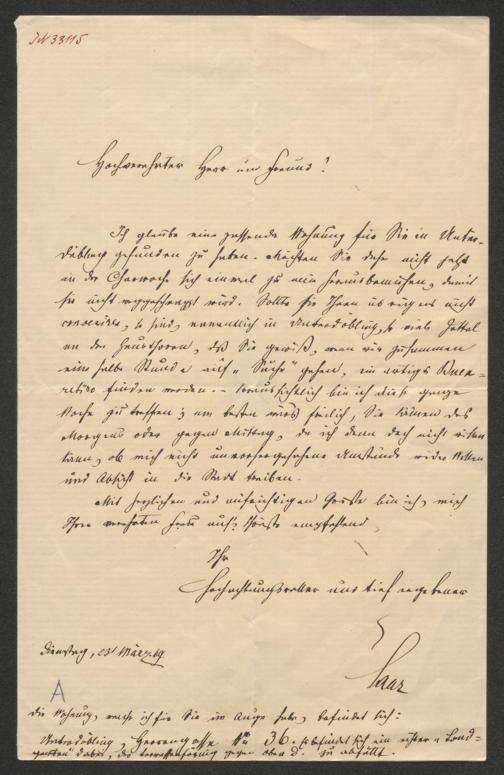 JN 33115
Hochverehrter Herr und Freund!
Ich glaube eine passende Wohnung für Sie in Unter-
döbling gefunden zu haben. Möchten Sie daher nicht jetzt
in der Charwoche sich einmal zu mir herausbemühen, damit
sie nicht weggeschnappt wird. Sollte sie Ihnen übrigens nicht
conveniren, so sind, namentlich in Unterdöbling, so viele Zettel
an den Hausthoren, daß Sie gewiß, wenn wir zusammen
eine halbe Stunde auf „Suche" gehen, ein artiges Buen-
retiro finden werden. – Voraussichtlich bin ich diese ganze
Woche zu treffen; am besten wird freilich, Sie kämen des
Morgens oder gegen Mittag, da ich denn doch nicht wissen
kann, ob mich nicht unvorhergesehene Umstände wider Willen
und Absicht in die Stadt treiben.
Mit herzlichen und aufrichtigen Grüße bin ich, mich
Ihrer verehrten Frau auf's Schönste empfehlend,
Ihr
Hochachtungsvoller und tief ergebener
Saar
Dienstag, 23 März
A
Die Wohnung, welche ich für Sie im Auge habe, befindet sich:
Unterdöbling, Herrengasse Nr 36. befindet sich ein
garten" dabei, der terrassenförmig gegen oben abfällt.